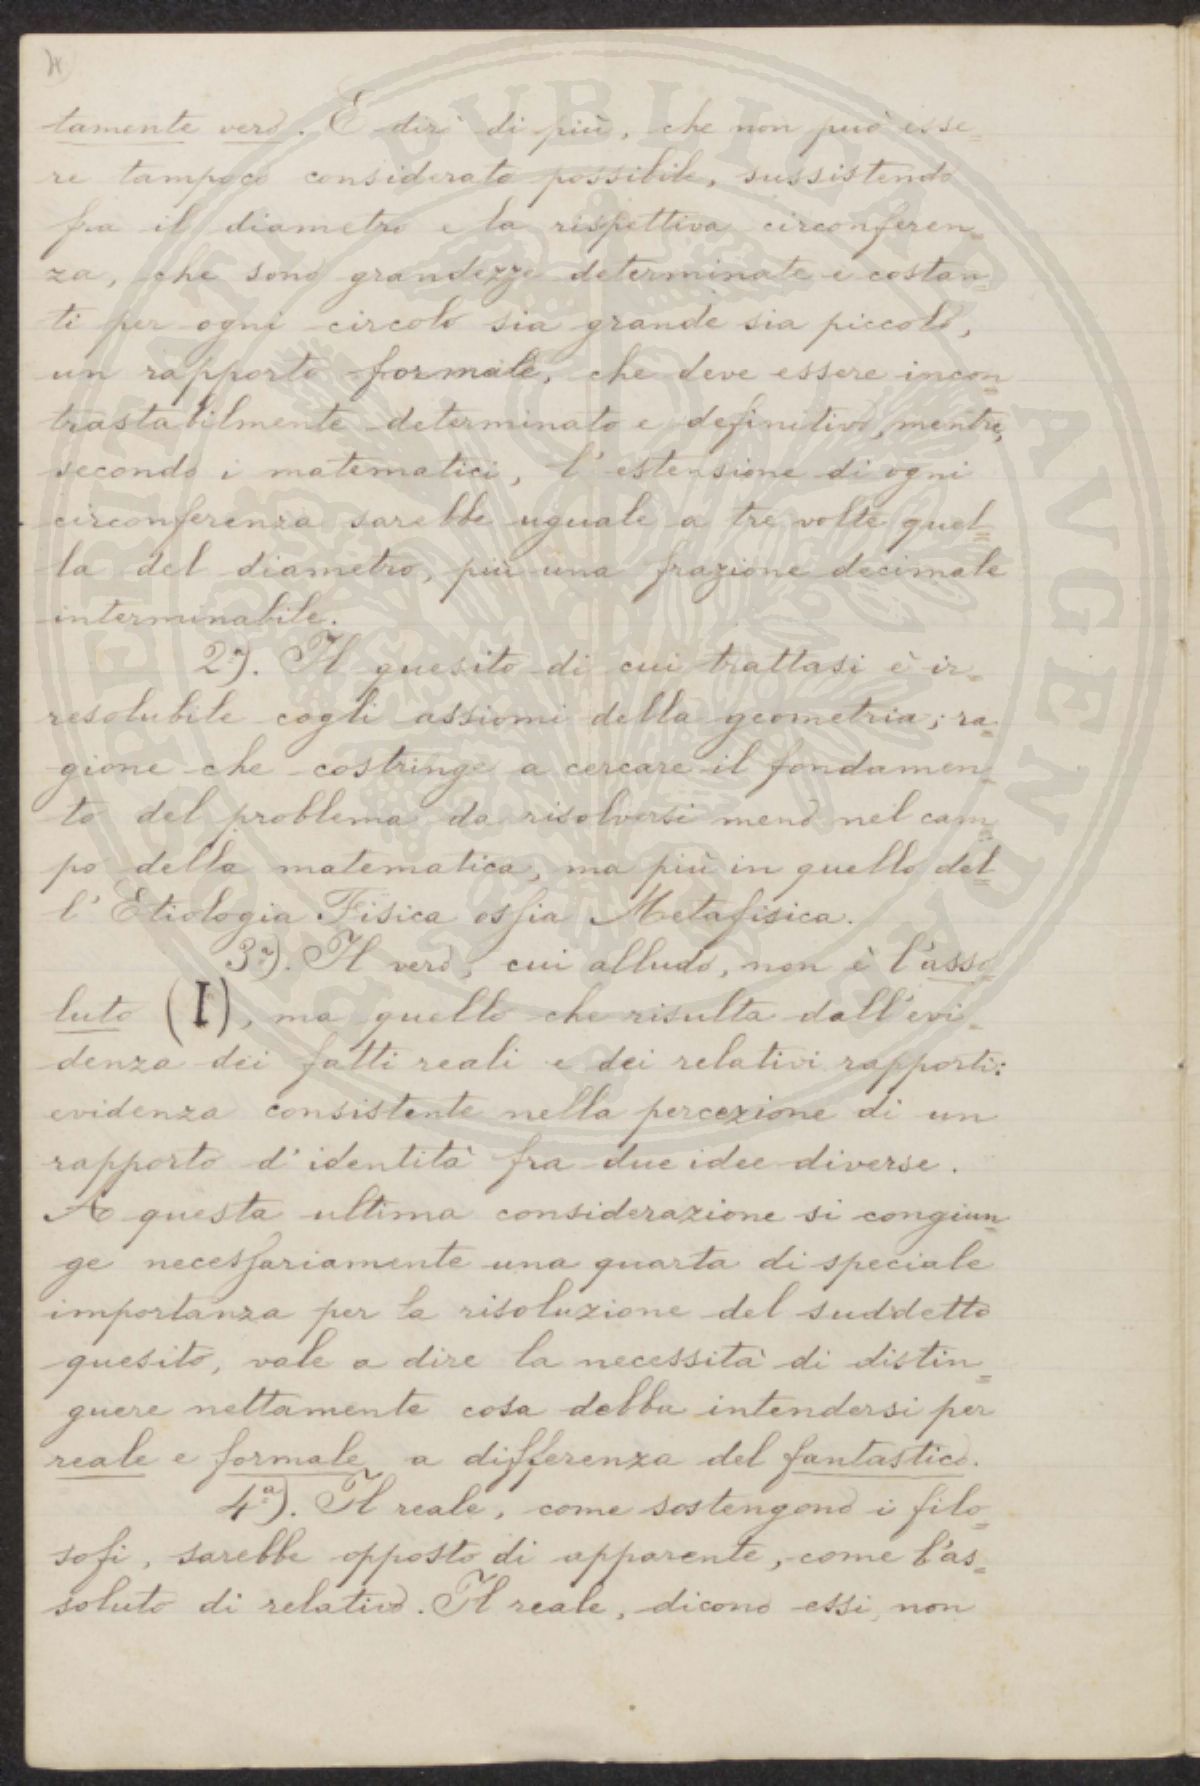 tamente vero. E dirò di più, che non può esse=
re tampoco considerato possibile, sussistendo
fra il diametro e la rispettiva circonferen=
za, che sono grandezze determinate e costan=
ti per ogni circolo sia grande sia piccolo,
un rapporto formale, che deve essere incon=
trastabilmente determinato e definitivo, mentre,
secondo i matematici, l'estensione di ogni
circonferenza sarebbe uguale a tre volte quel=
la del diametro, più una frazione decimale
interminabile.
2ª). Il quesito di cui trattasi è ir=
resolubile cogli assiomi della geometria; ra=
gione che costringe a cercare il fondamen=
to del problema da risolversi meno nel cam=
po della matematica, ma più in quello del=
l'Etiologia Fisica ossia Metafisica.
3ª). Il vero, cui alludo, non è l'asso=
luto (I), ma quello che risulta dall'evi=
denza dei fatti reali e dei relativi rapporti:
evidenza consistente nella percezione di un
rapporto d'identità fra due idee diverse.
A questa ultima considerazione si congiun=
ge necessariamente una quarta di speciale
importanza per la risoluzione del suddetto
quesito, vale a dire la necessità di distin=
guere nettamente cosa debba intendersi per
reale e formale a differenza del fantastico.
4ª). Il reale, come sostengono i filo=
sofi, sarebbe opposto di apparente, come l'as=
soluto di relativo. Il reale, dicono essi, non